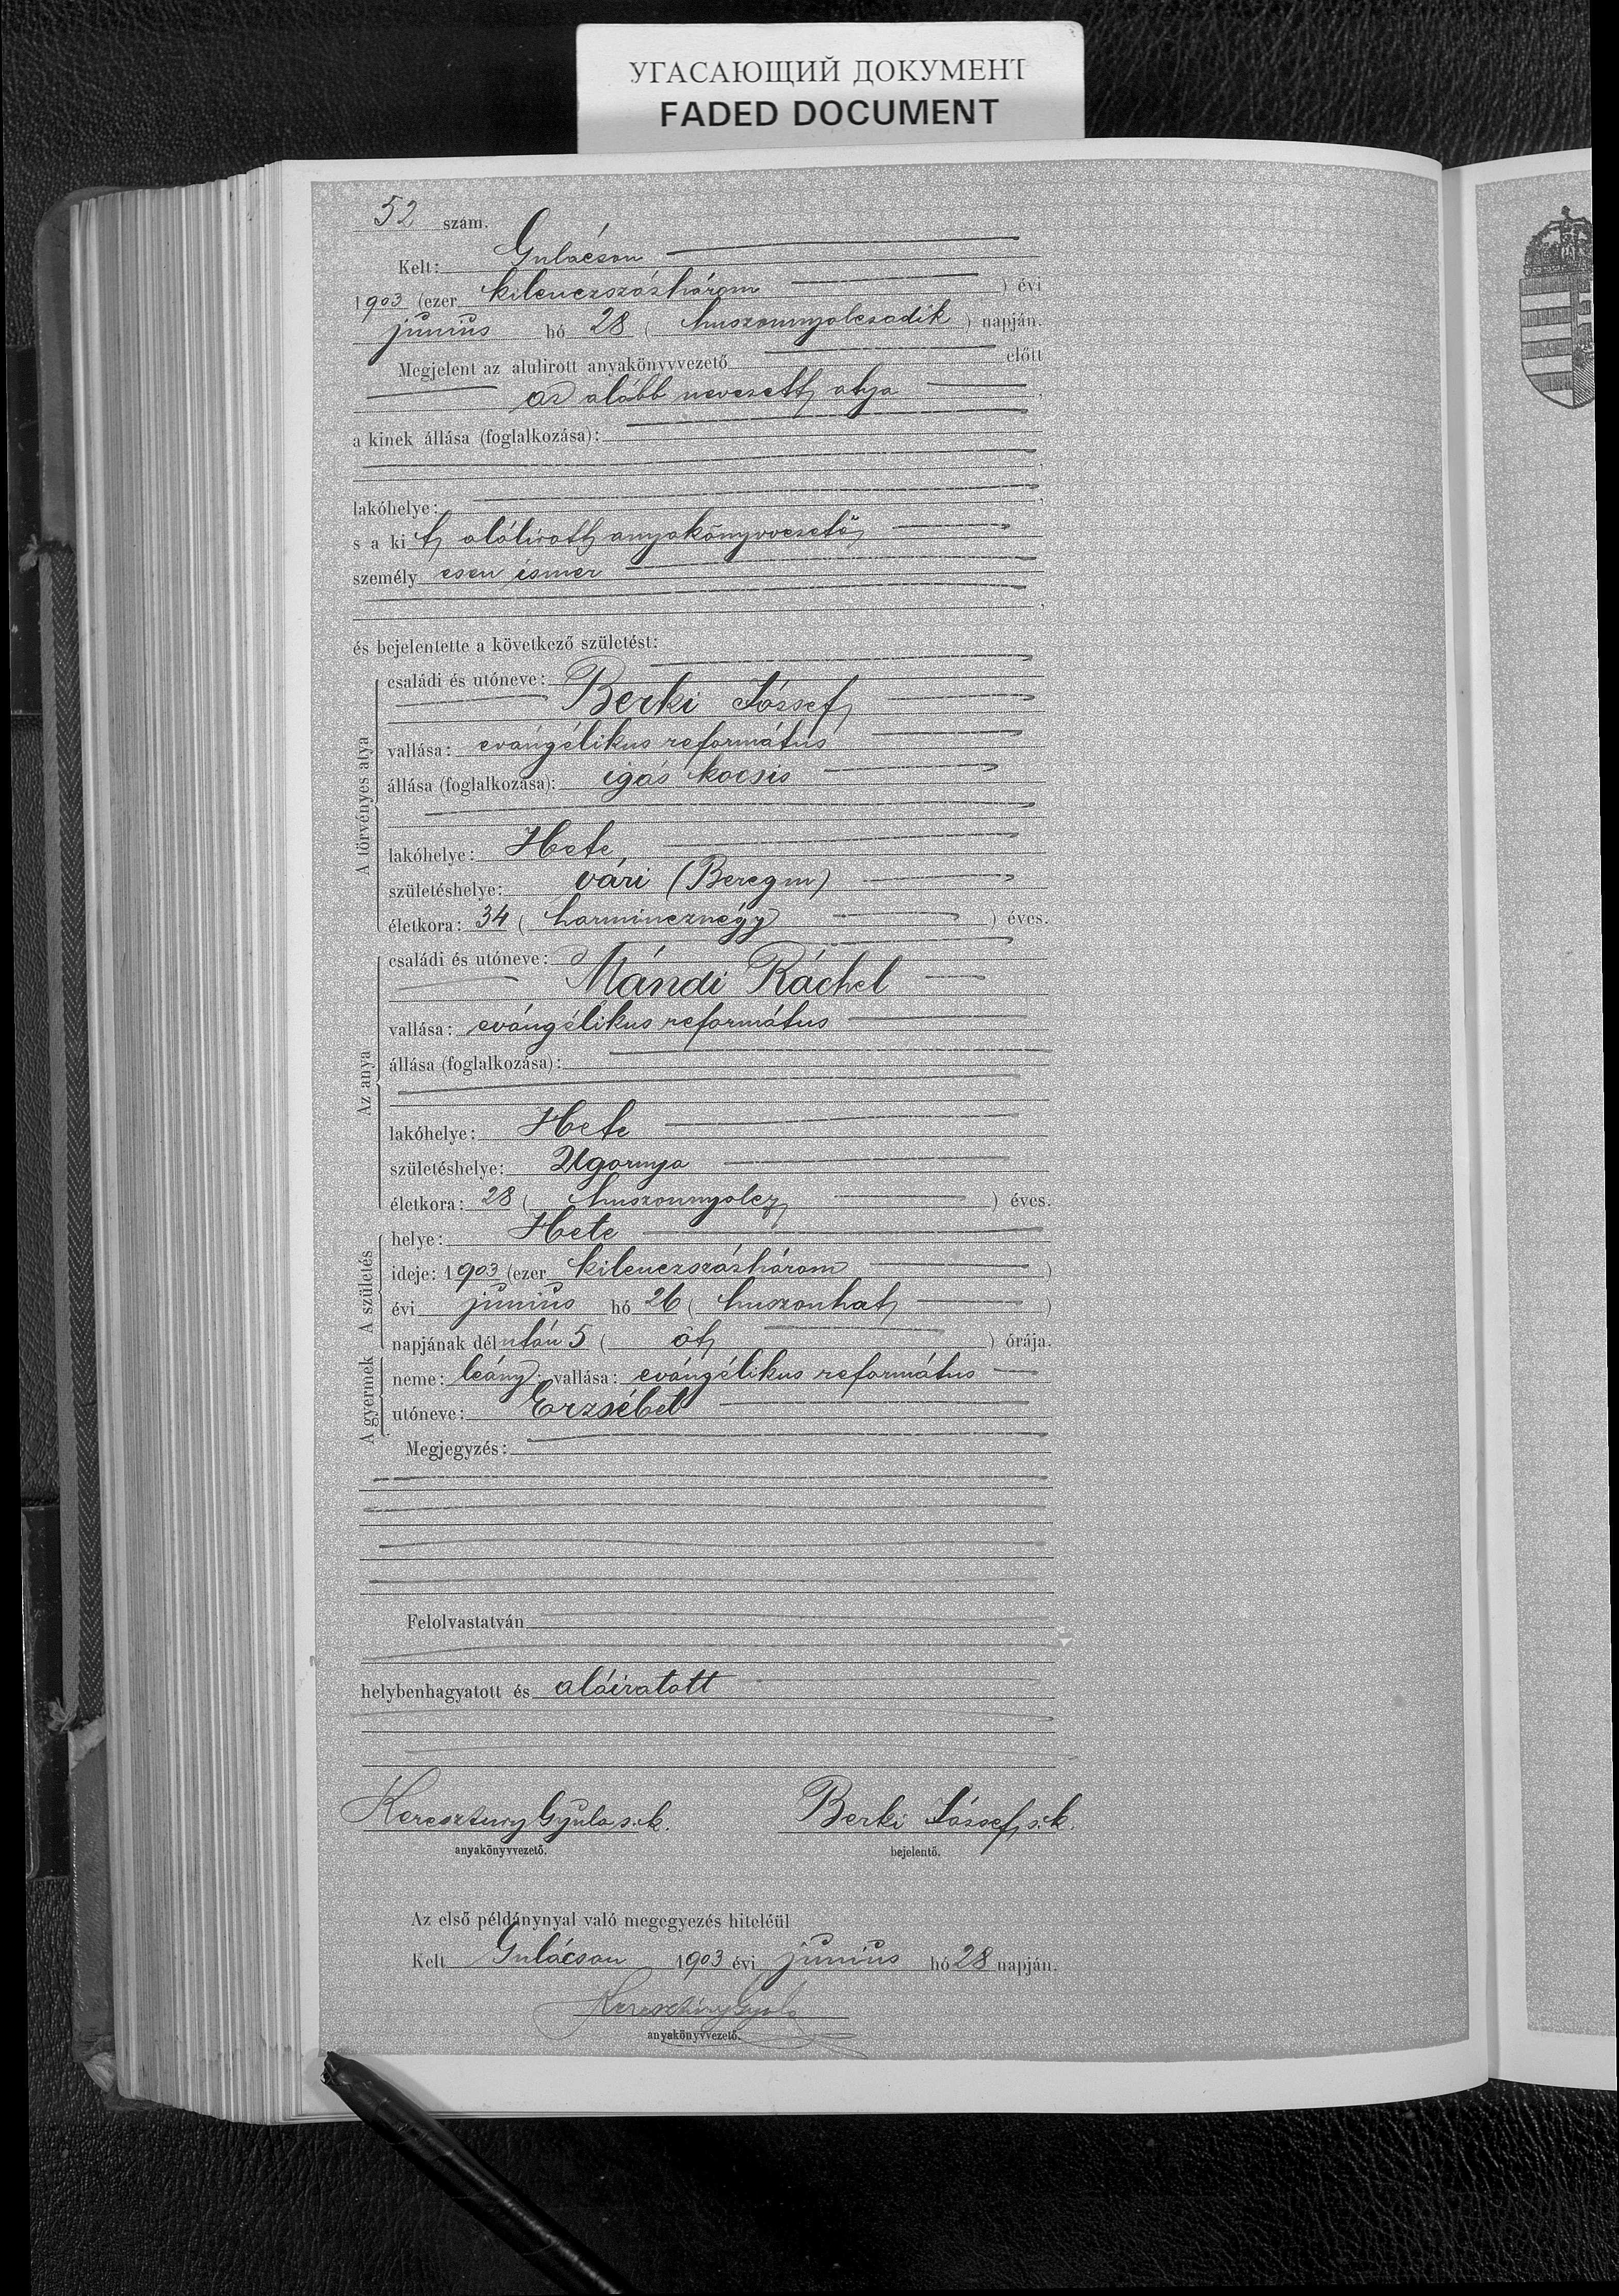 УГАСАЮЩИЙ ДОКУМЕНТ
FADED DOCUMENT
52 szám.
Kelt: Gulácson
1903 (ezer kilenczszázhárom ) évi
június hó 28 ( huszonnyolczadik ) napján.
Megjelent az alulirott anyakönyvvezető előtt
az alább nevezett atya
a kinek állása (foglalkozása):
lakóhelye:
s a kit alólirott anyakönyvvezető
személyesen ismer
és bejelentette a következő születést:
A törvényes atya
családi és utóneve:
Berki József
vallása: evangélikus református
állása (foglalkozása): igás kocsis
lakóhelye: Hete
születéshelye: vári (Beregm)
életkora: 34 ( harmincznégy ) éves.
Az anya
családi és utóneve:
Mándi Ráchel
vallása: evángélikus református
állása (foglalkozása):
lakóhelye: Hete
születéshelye: Ugornya
életkora: 28 ( huszonnyolcz ) éves.
A születés
helye: Hete
ideje: 1903 (ezer kilenczszázhárom )
évi június hó 26 ( huszonhat )
napjának délután 5 ( öt ) órája.
A gyermek
neme: leány; vallása: evángélikus református
utóneve: Erzsébet
Megjegyzés:
Felolvastatván
helybenhagyatott és aláiratott
Keresztury Gyula s.k. Berki József s.k.
anyakönyvvezető. bejelentő.
Az első példánynyal való megegyezés hiteléül
Kelt Gulácson 1903 évi június hó 28 napján.
Keresztúry Gyula
anyakönyvvezető.